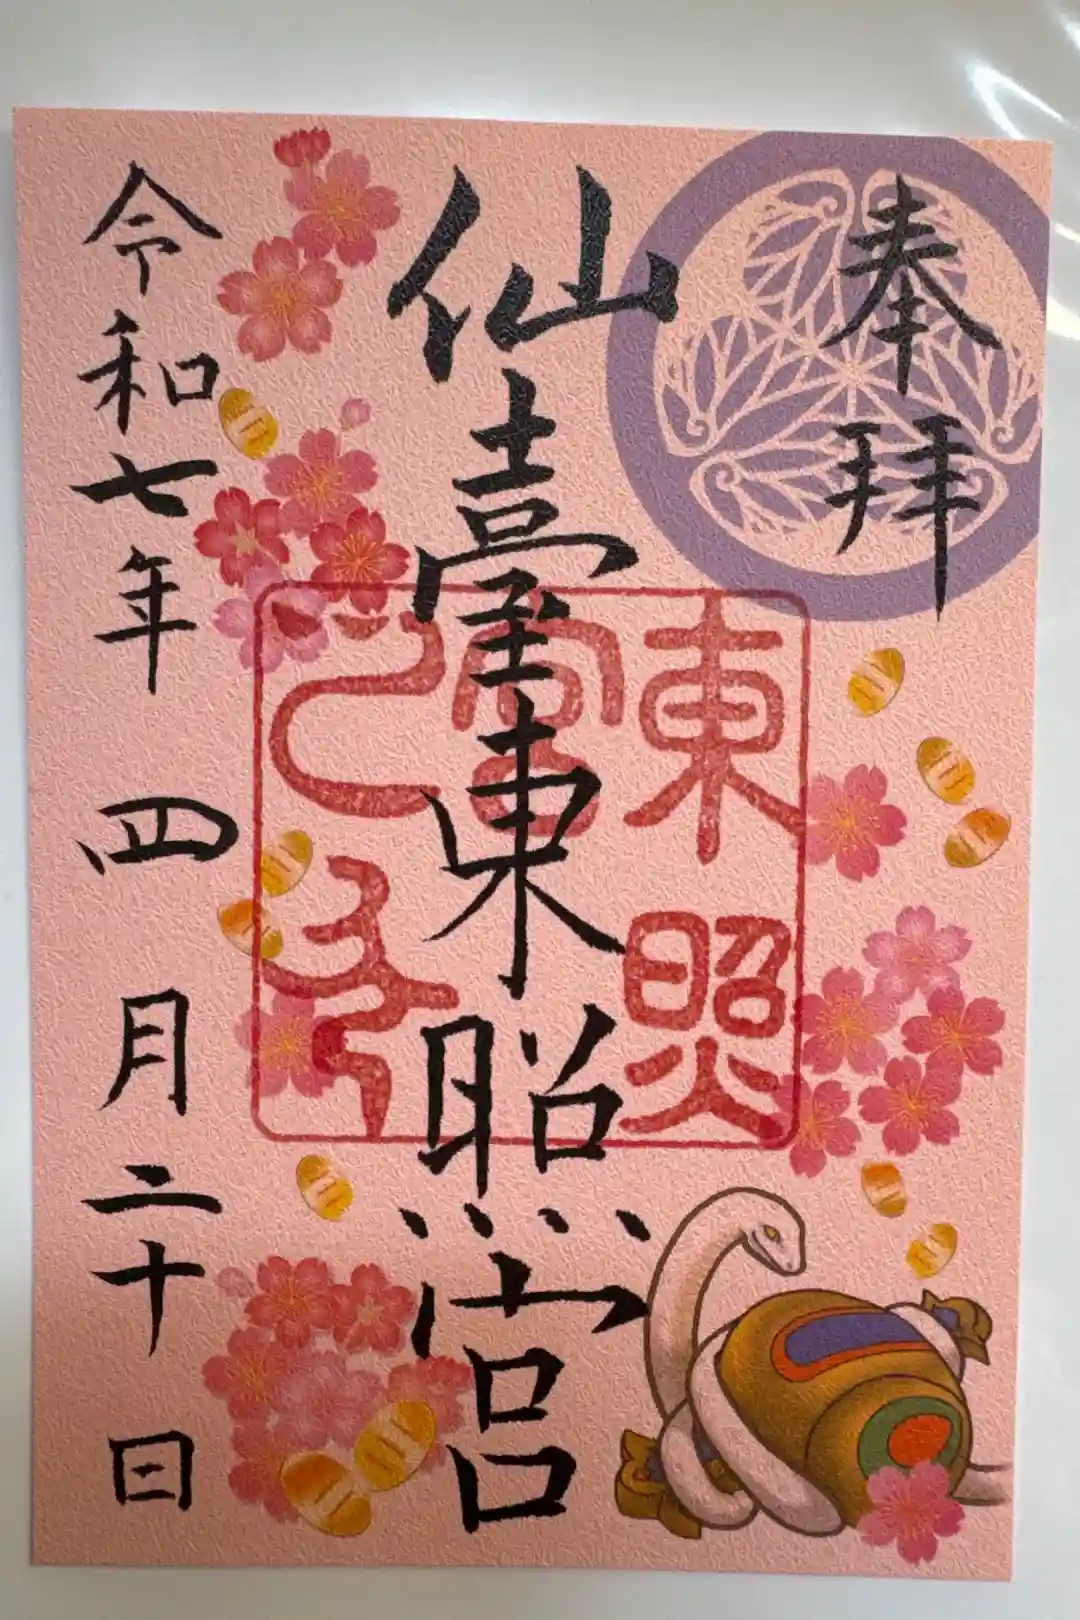 奉拝
仙臺東照宮
東照
宮
乙巳年
令和七年 四月二十日